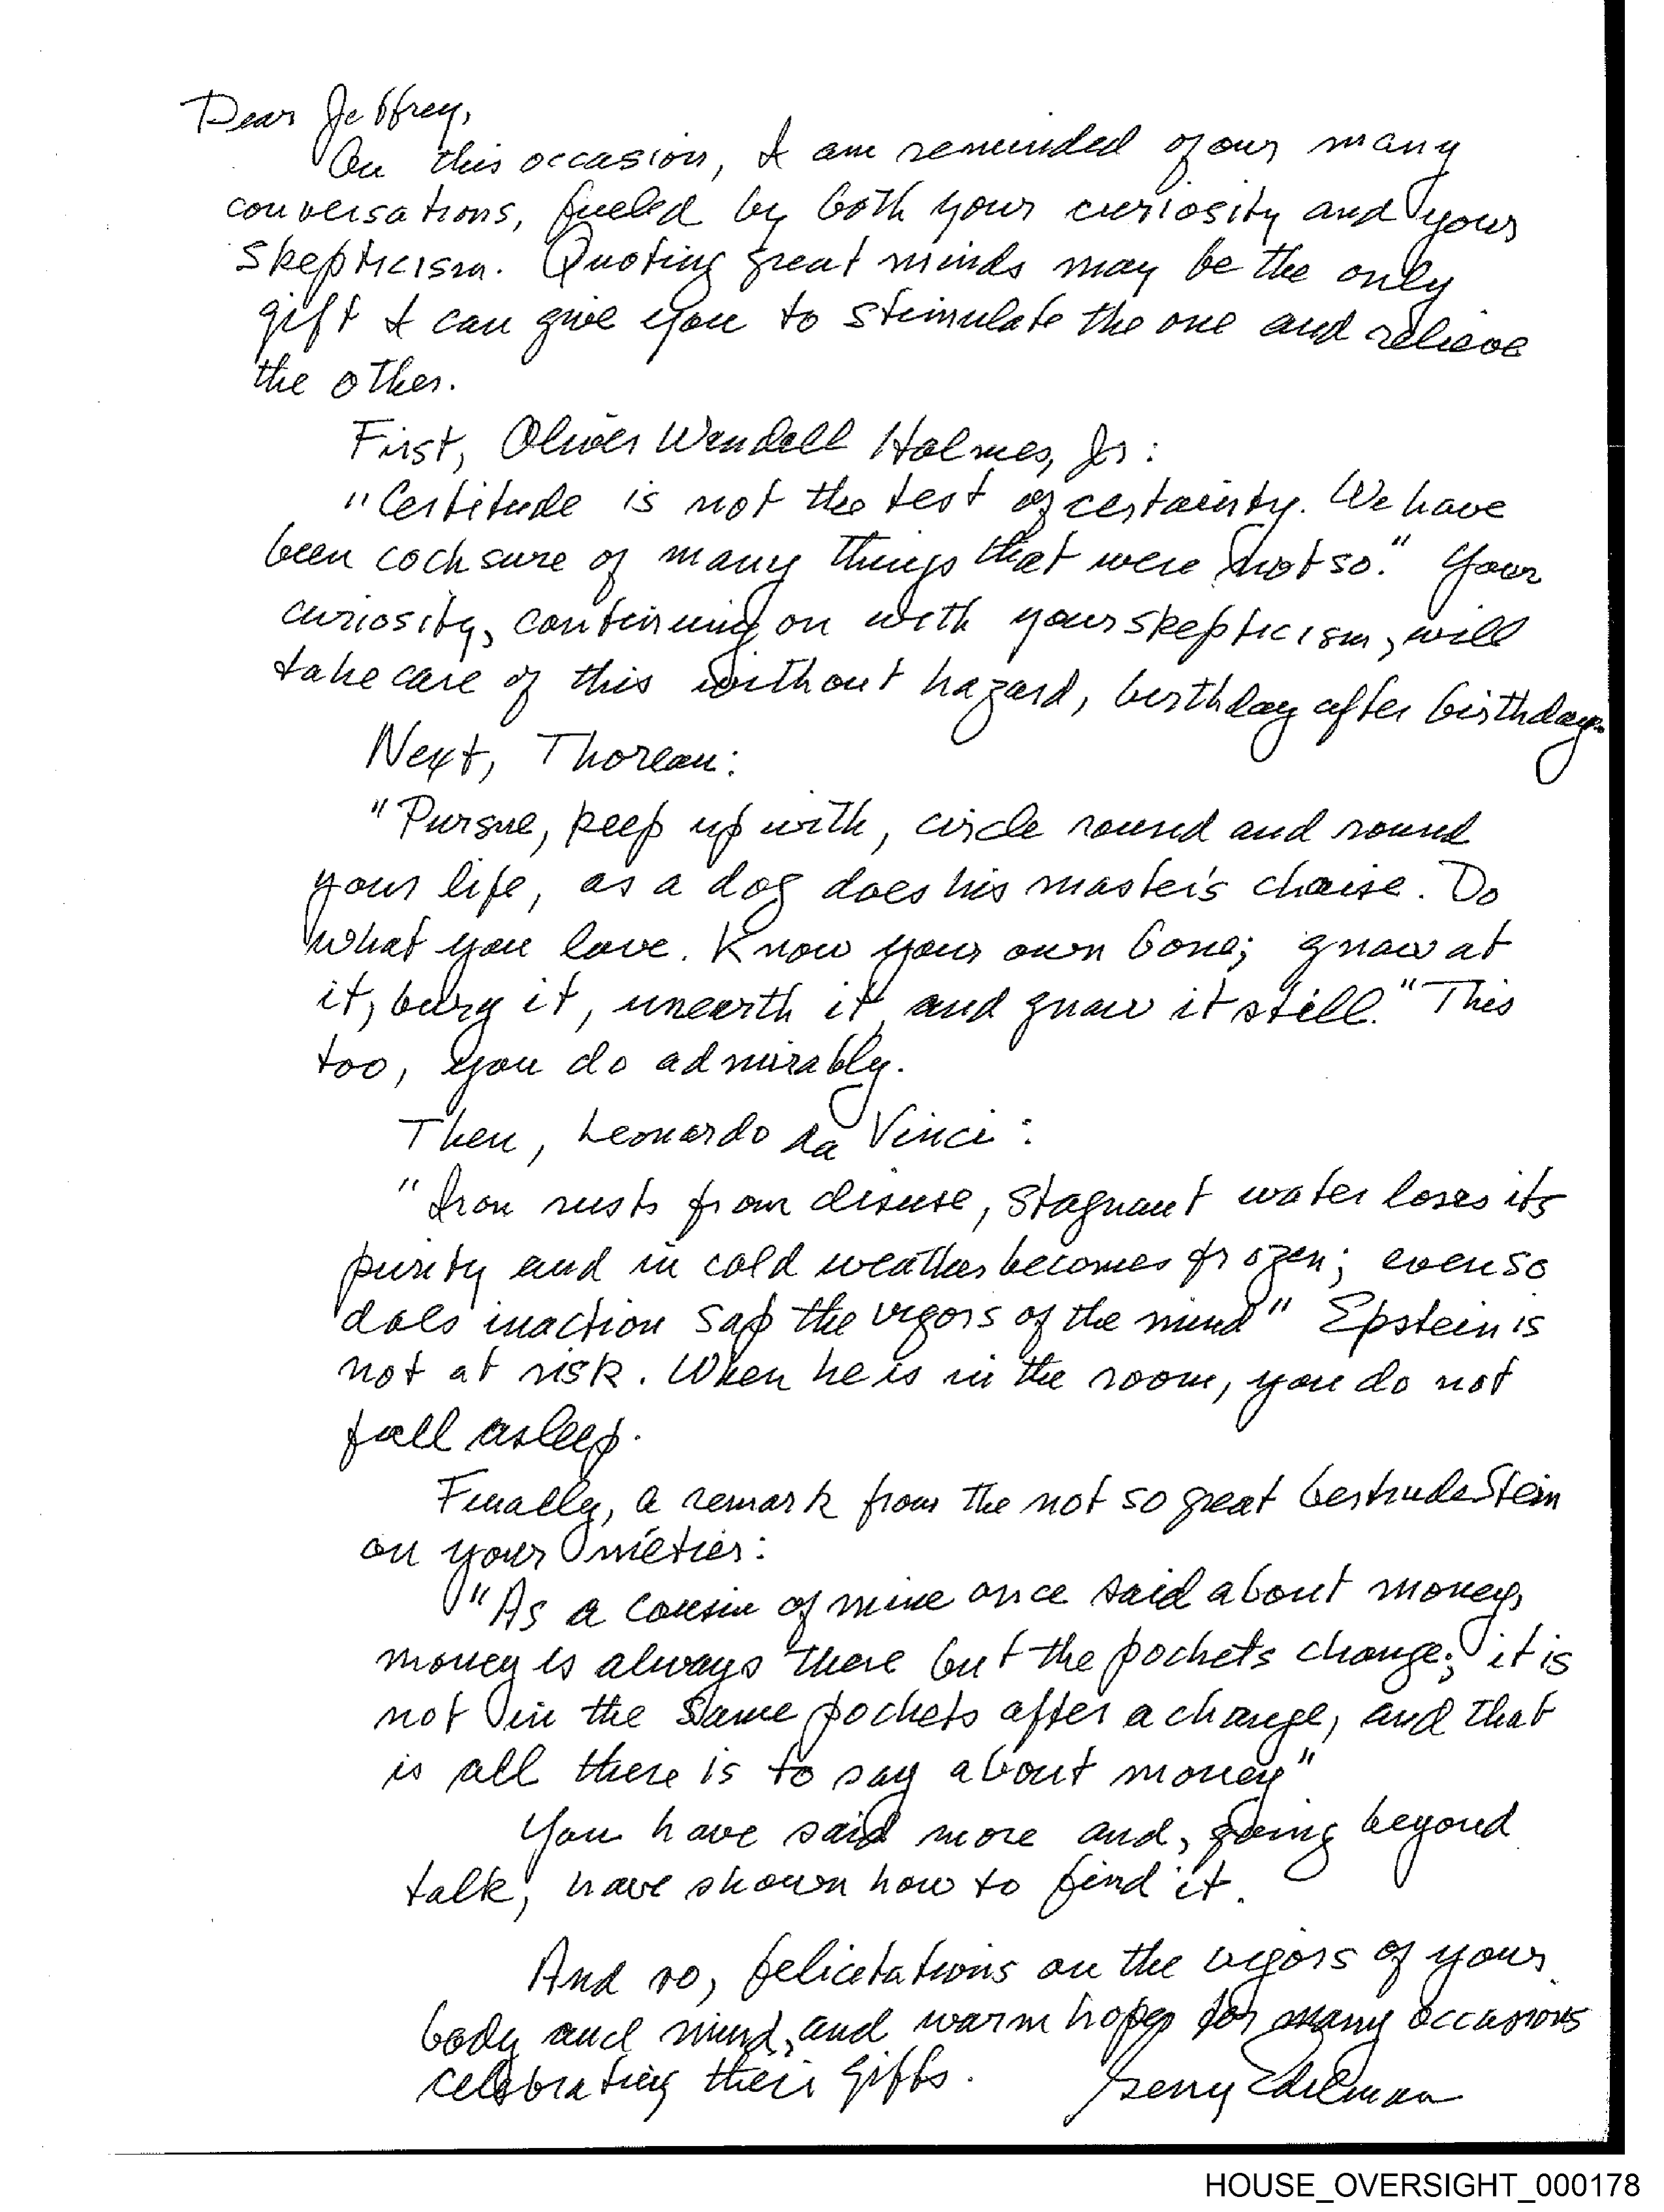 Dear Jeffrey,
On this occasion, I am reminded of our many
conversations, fueled by both your curiosity and your
skepticism. Quoting great minds may be the only
gift I can give you to stimulate the one and relieve
the other.
First, Oliver Wendell Holmes, Jr:
"Certitude is not the test of certainty. We have
been cocksure of many things that were not so." Your
curiosity, continuing on with your skepticism, will
take care of this without hazard, birthday after birthday.
Next, Thoreau:
"Pursue, keep up with, circle round and round
your life, as a dog does his master's chaise. Do
what you love. Know your own bone; gnaw at
it, bury it, unearth it and gnaw it still." This
too, you do admirably.
Then, Leonardo da Vinci:
"Iron rusts from disuse, stagnant water loses its
purity and in cold weather becomes frozen; even so
does inaction sap the vigors of the mind" Epstein is
not at risk. When he is in the room, you do not
fall asleep.
Finally, a remark from the not so great Gertrude Stein
on your métier:
"As a cousin of mine once said about money,
money is always there but the pockets change; it is
not in the same pockets after a change, and that
is all there is to say about money"
You have said more and, going beyond
talk, have shown how to find it.
And so, felicitations on the vigors of your
body and mind, and warm hopes for many occasions
celebrating their gifts. Gerry Edelman
HOUSE_OVERSIGHT_000178